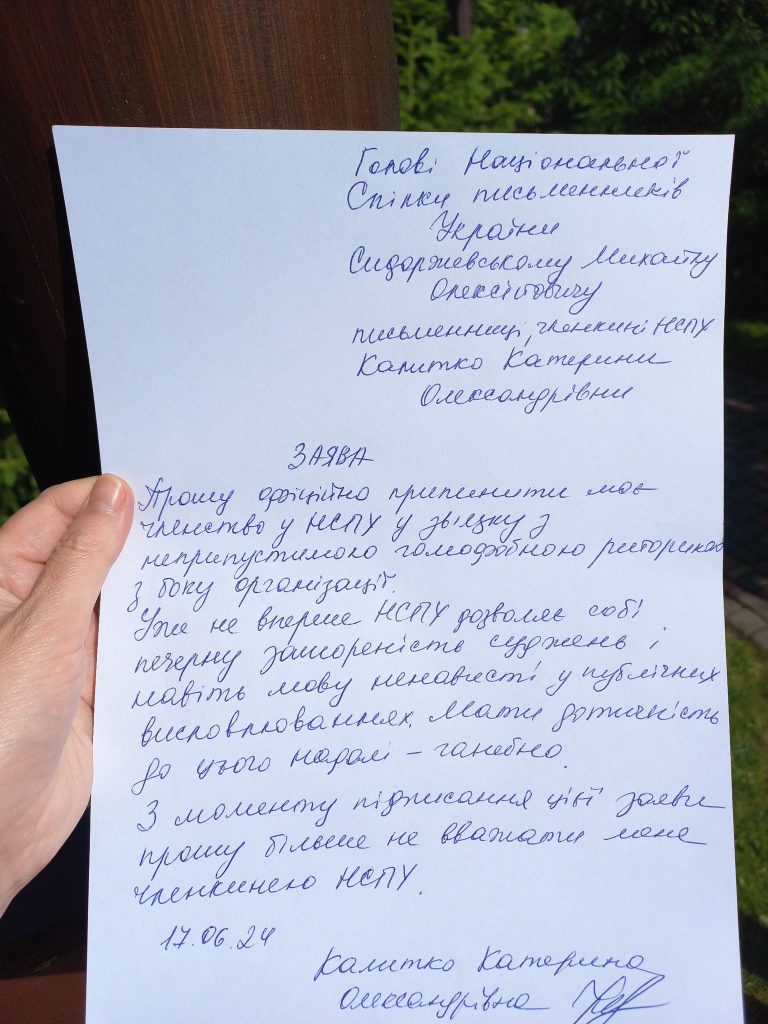 Голові Національної
Спілки письменників
України
Сидоржевському Михайлу
Олексійовичу
письменниці, членкині НСПУ
Калитко Катерини
Олександрівни
ЗАЯВА
Прошу офіційно припинити моє
членство у НСПУ у звʼязку з
неприпустимою гомофобною риторикою
з боку організації.
Уже не вперше НСПУ дозволяє собі
печерну зашореність суджень і
навіть мову ненависті у публічних
висловлюваннях. Мати дотичність
до цього надалі – ганебно.
З моменту підписання цієї заяви
прошу більше не вважати мене
членкинею НСПУ.
17.06.24
Калитко Катерина
Олександрівна